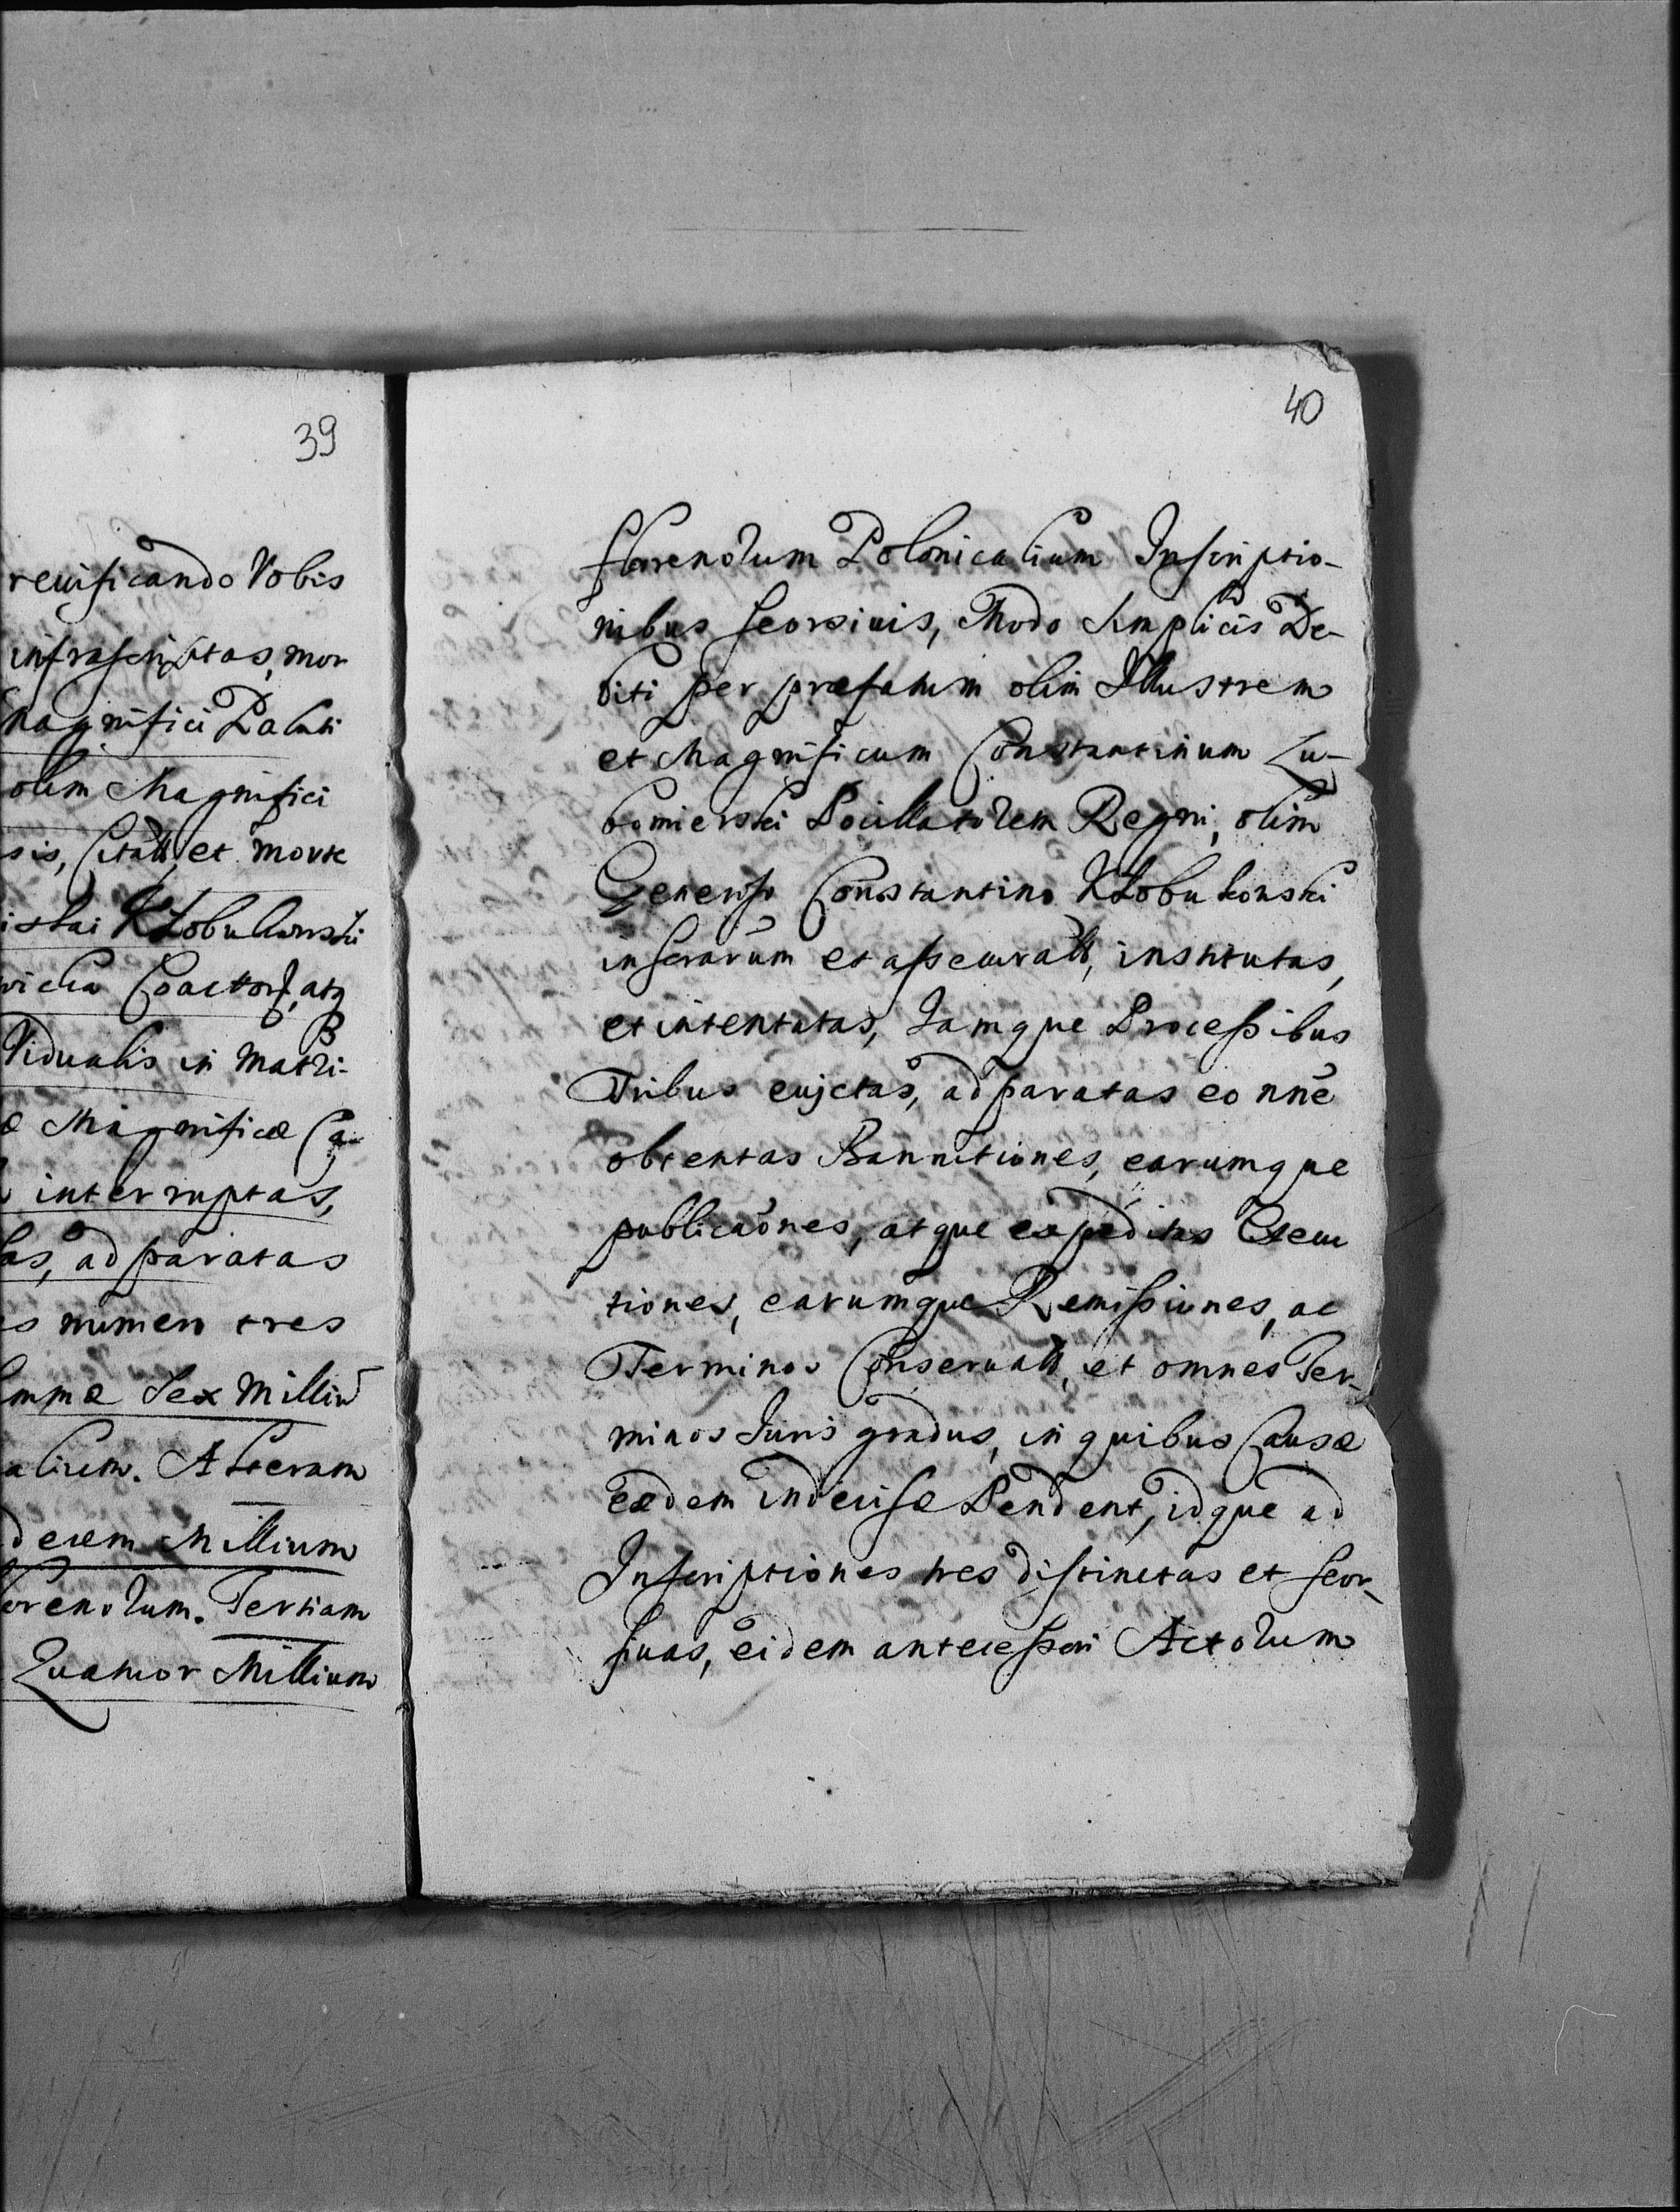 39
reuificando Vobis
infrascriptas, mor
Magnifici Palati
olim Magnifici
sis, et morte
Kłobukowski
Vidualis in Matri-
Magnificæ Ca
interruptas,
as, ad paratas
numero tres
Sex Milliū
alium. Alteram
decem Millium
orenorum. Tertiam
Quatuor Millium
40
florenorum Polonicalium Inscriptio-
nibus seorsiuis, Modo Simplicis De-
biti per præfatum olim Illustrem
et Magnificum Constantinum Lu-
bomierski Pocillatorem Regni, olim
Generoso Constantino Kłobukowski
et assecuratt, institutas,
et intentatas, Jamque Processibus
Tribus euictas, ad paratas eo nñe
obtentas Bannitiones, earumque
publicaõnes, atque expeditas Execu
tiones, earumque Remissiones, ac
Terminos Conseruatt, et omnes Ter-
minos Juris gradus, in quibus Causæ
eædem indecisæ Pendent, idque ad
Inscriptiones tres distinctas et seor-
siuas, eidem antecessori Actorum